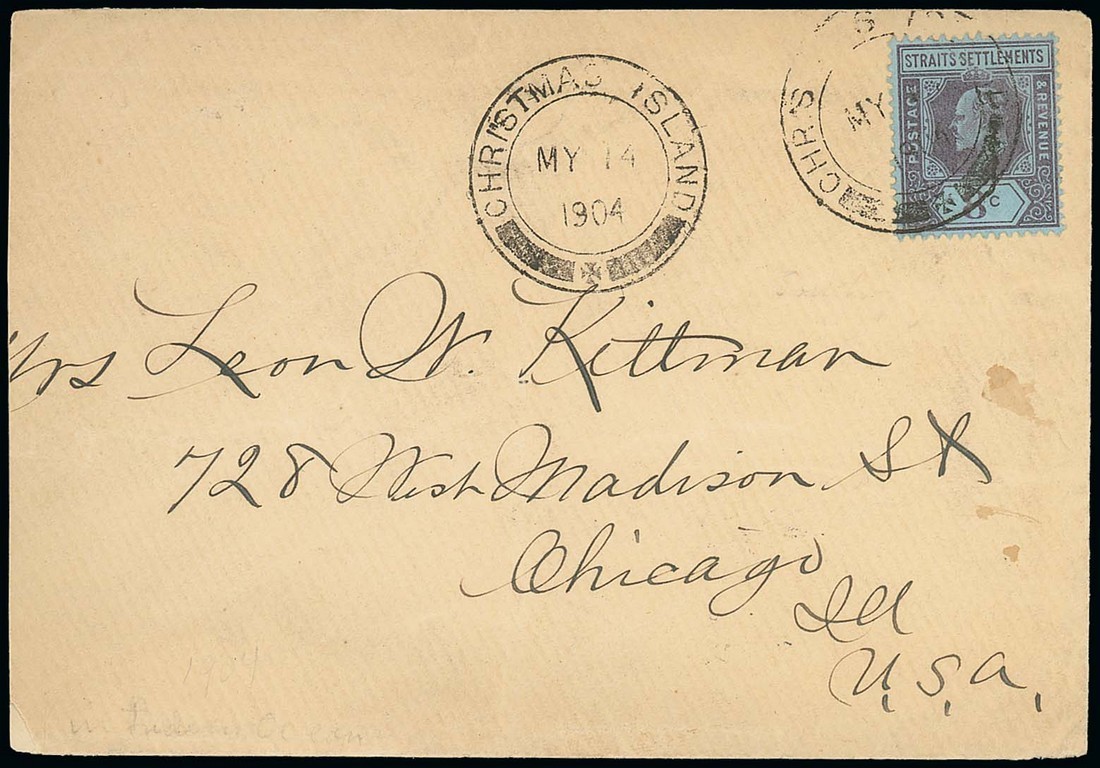 CHRISTMAS ISLAND
MY 14
1904
CHRIS
MY
STRAITS SETTLEMENTS
POSTAGE & REVENUE
8 C
Mrs Leon W. Kittman
728 West Madison St
Chicago
Ill
U.S.A.
1904
in Indian Ocean